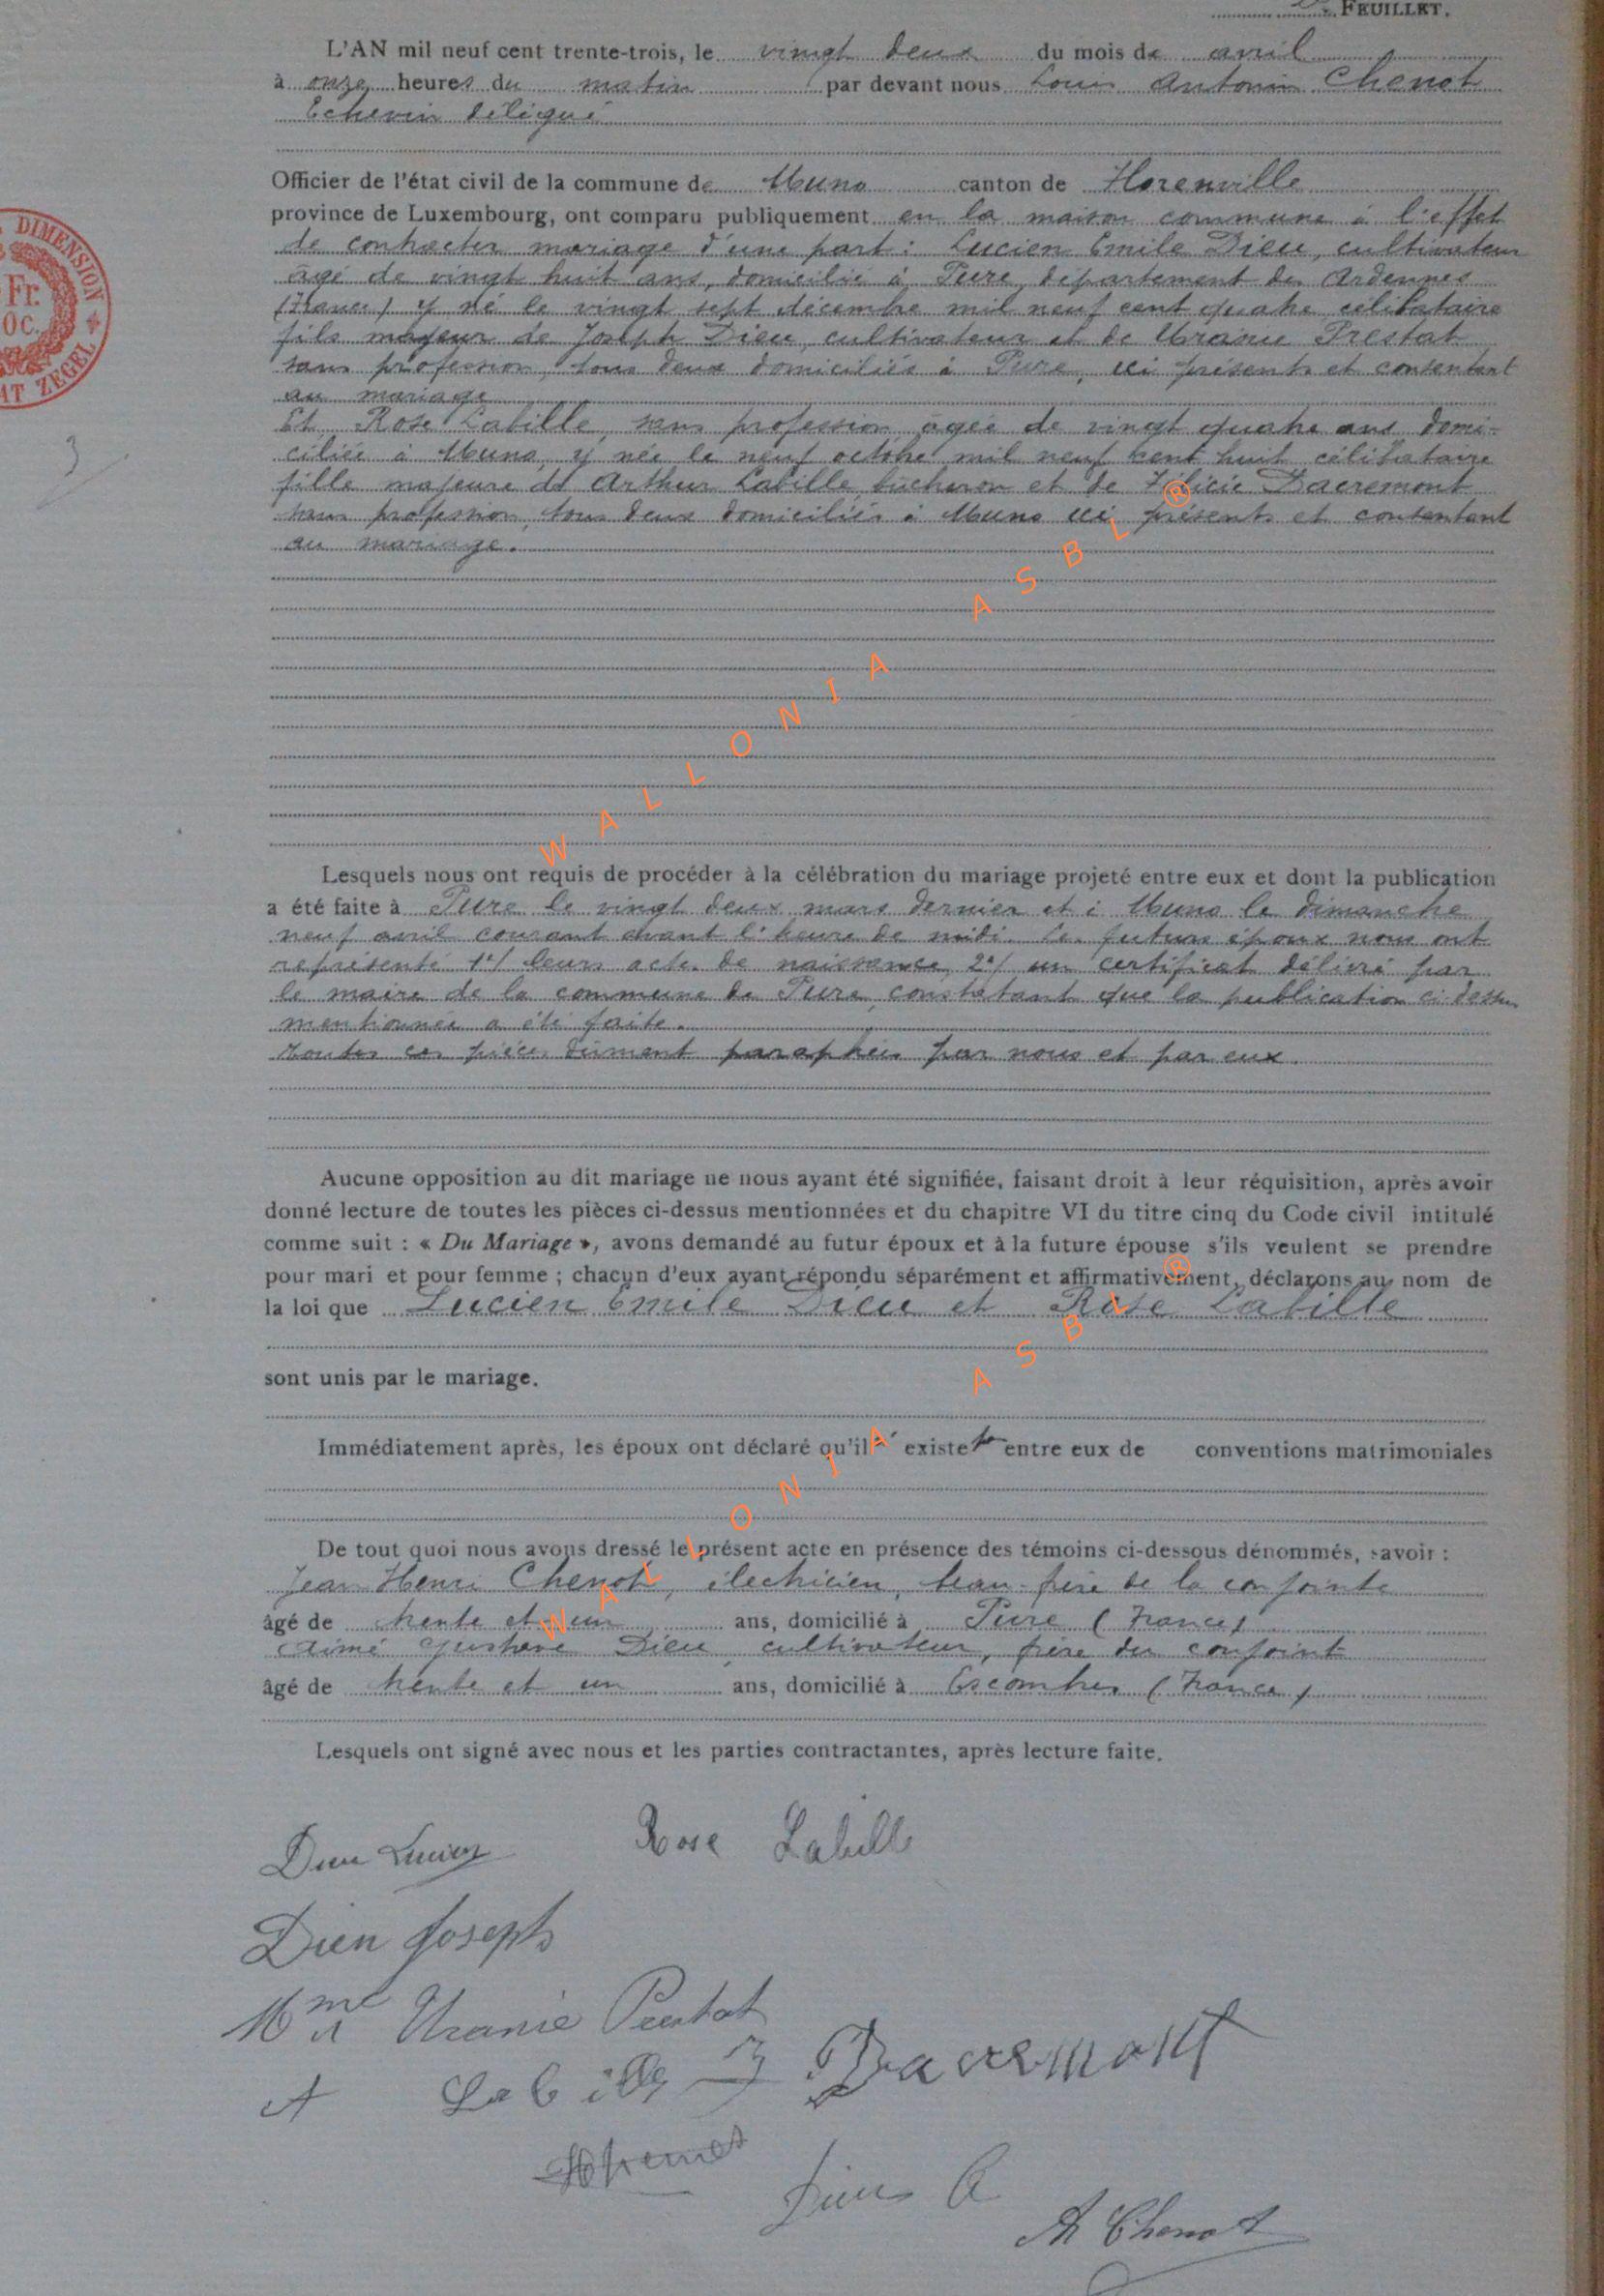 FEUILLET.
L'AN mil neuf cent trente-trois, le vingt deux du mois de avril
à onze heures du matin par devant nous Louis Antonin Chenot
Echevin délégué
Officier de l'état civil de la commune de Muno canton de Florenville
province de Luxembourg, ont comparu publiquement en la maison commune à l'effet
de contracter mariage d'une part : Lucien Emile Dieu, cultivateur
âgé de vingt huit ans, domicilié à Pure, département des Ardennes
(France) y né le vingt sept décembre mil neuf cent quatre célibataire
fils majeur de Joseph Dieu, cultivateur et de Uranie Prestat
sans profession, tous deux domiciliés à Pure, ici présents et consentant
au mariage
Et Rose Labille, sans profession âgée de vingt quatre ans domi-
ciliée à Muno, y née le neuf octobre mil neuf cent huit célibataire
fille majeure de Arthur Labille, bûcheron et de Félicie Dacremont
sans profession, tous deux domiciliés à Muno ici présents et consentant
au mariage.
Lesquels nous ont requis de procéder à la célébration du mariage projeté entre eux et dont la publication
a été faite à Pure le vingt deux mars dernier et à Muno le dimanche
neuf avril courant avant l'heure de midi. Les futurs époux nous ont
représenté 1°/ leurs actes de naissance, 2°/ un certificat délivré par
le maire de la commune de Pure, constatant que la publication ci dessus
mentionnée a été faite.
Toutes ces pièces dûment paraphées par nous et par eux.
Aucune opposition au dit mariage ne nous ayant été signifiée, faisant droit à leur réquisition, après avoir
donné lecture de toutes les pièces ci-dessus mentionnées et du chapitre VI du titre cinq du Code civil intitulé
comme suit : « Du Mariage », avons demandé au futur époux et à la future épouse s'ils veulent se prendre
pour mari et pour femme ; chacun d'eux ayant répondu séparément et affirmativement, déclarons au nom de
la loi que Lucien Emile Dieu et Rose Labille
sont unis par le mariage.
Immédiatement après, les époux ont déclaré qu'il n'existe pas entre eux de conventions matrimoniales
De tout quoi nous avons dressé le présent acte en présence des témoins ci-dessous dénommés, savoir :
Jean Henri Chenot, électricien, beau-frère de la conjointe
âgé de trente et un ans, domicilié à Pure (France)
Aimé Gustave Dieu, cultivateur, frère du conjoint
âgé de trente et un ans, domicilié à Escombres (France)
Lesquels ont signé avec nous et les parties contractantes, après lecture faite.
Dieu Lucien Rose Labille
Dieu Joseph
Mme Uranie Prestat
A Labille F Dacremont
Dieu A
A Chenot
DIMENSION
Fr.
OC.
ZEGEL
3
WALLONIA ASBL ®
WALLONIA ASBL ®